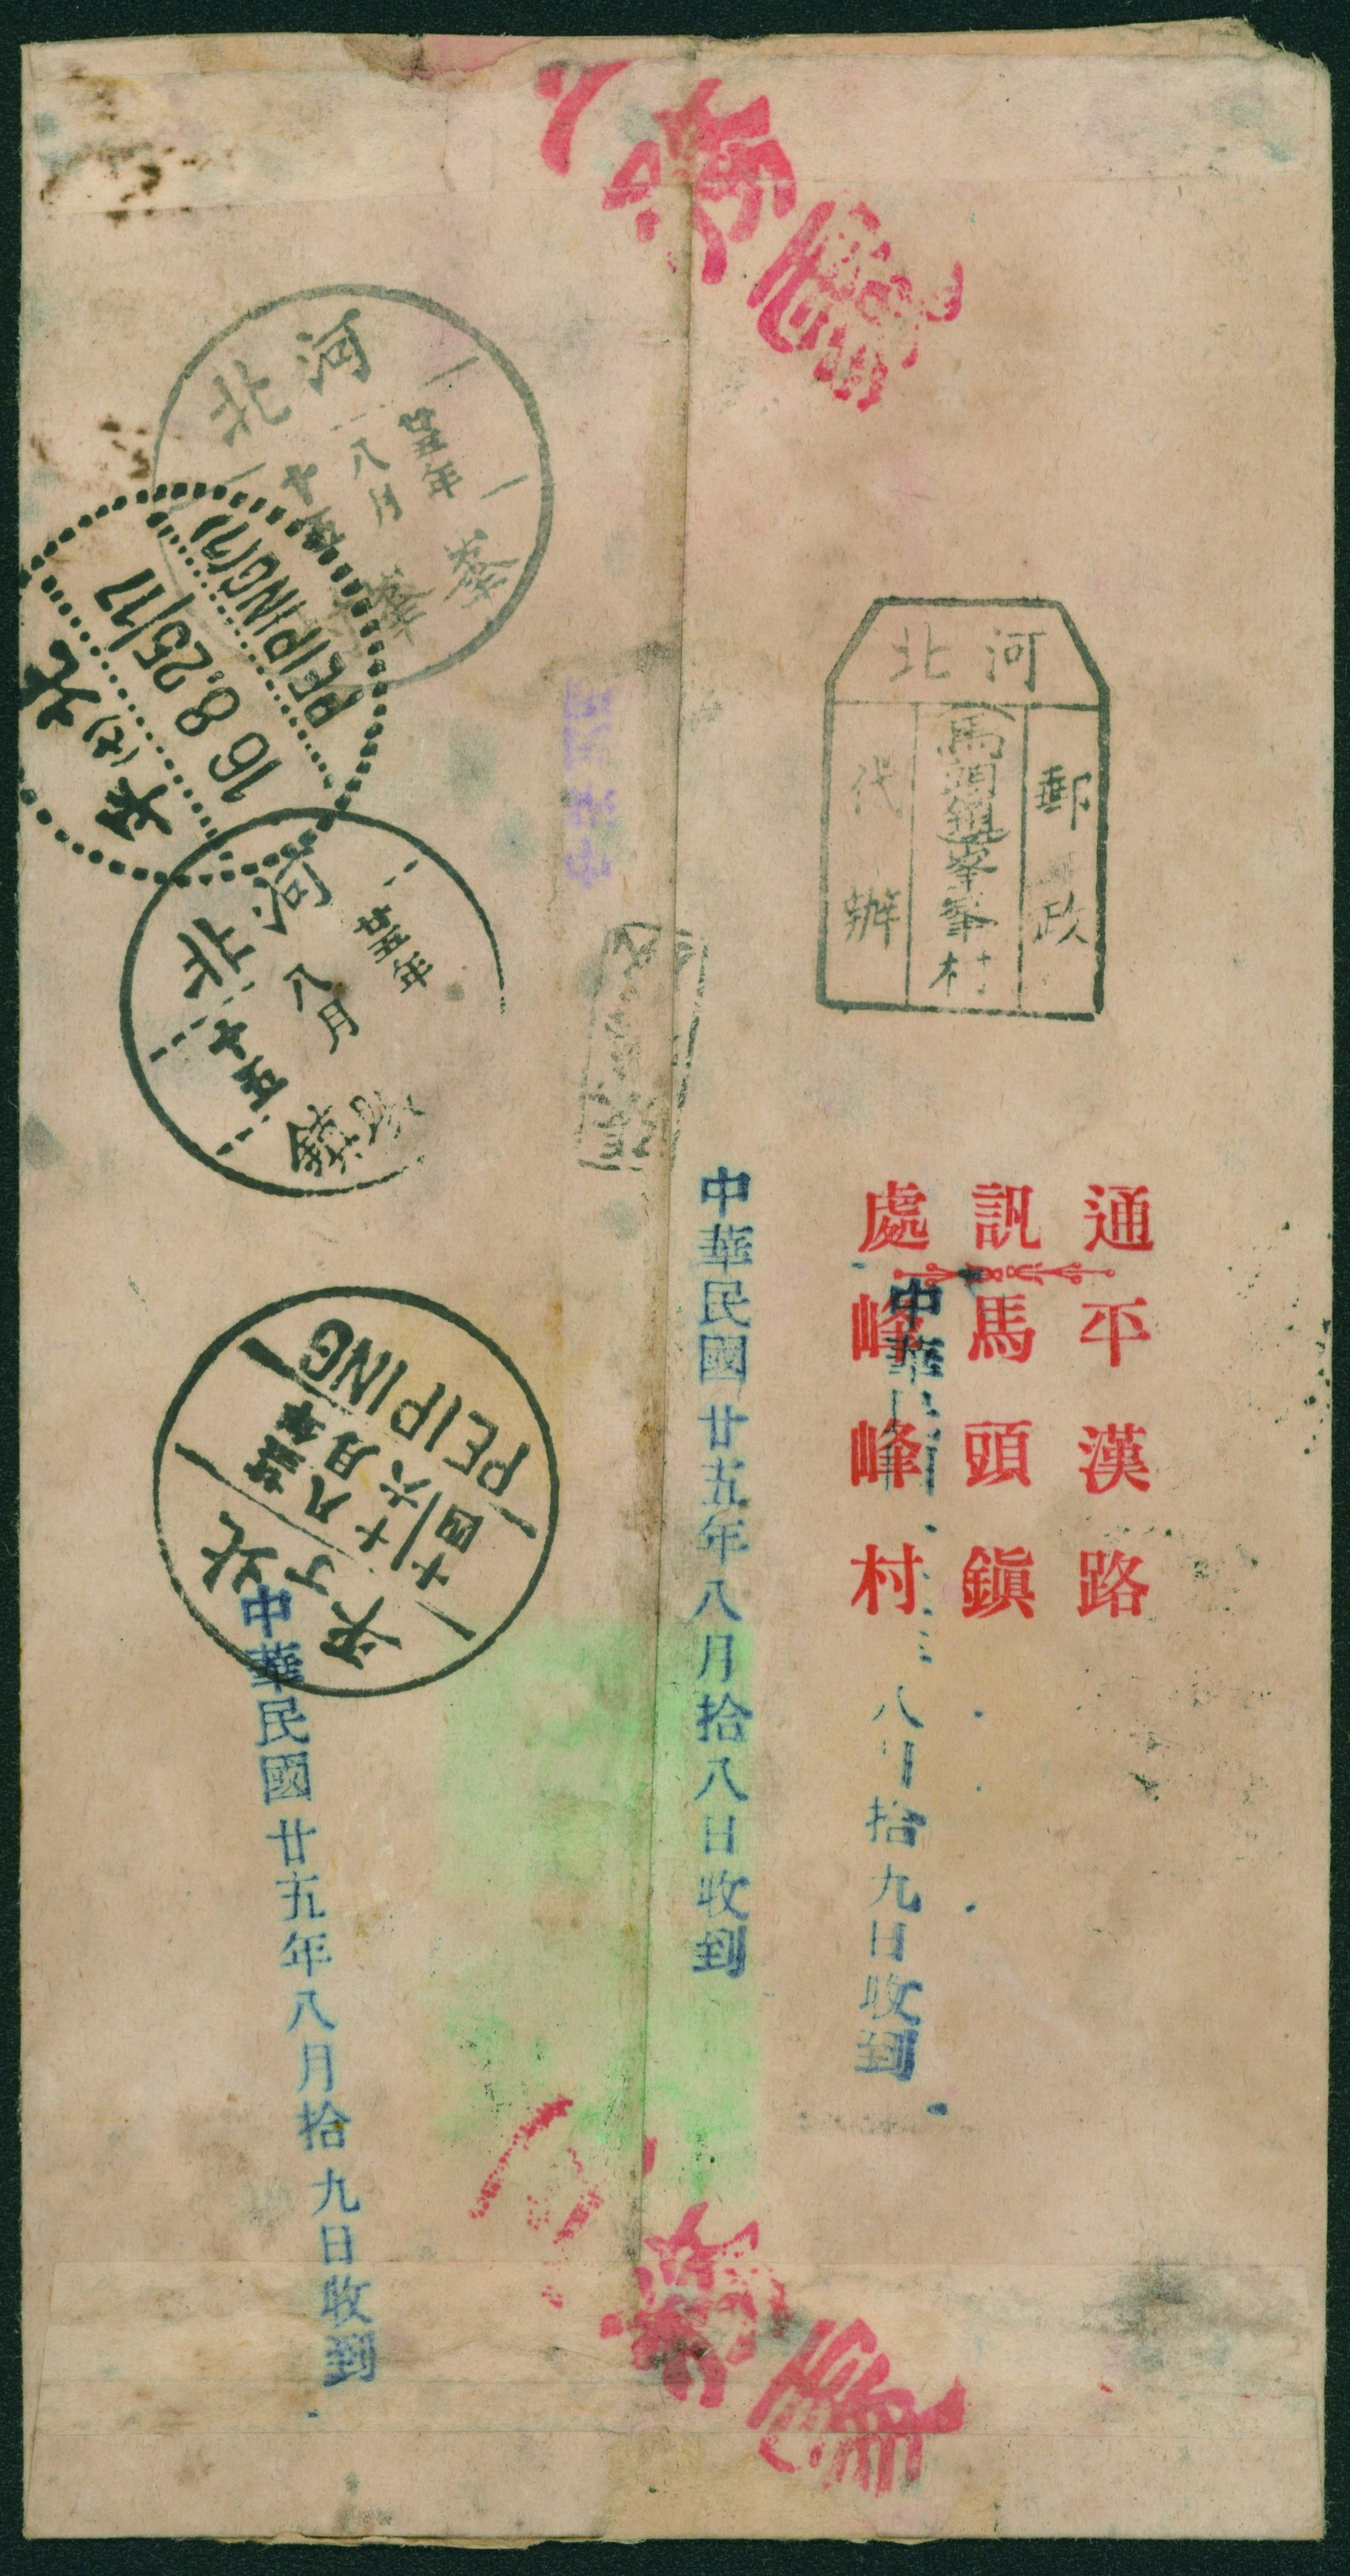 河北
廿五年
八月
十五
峯峯
PEIPING(7)
16.8.25/17
北平
(七)
河北
郵政
馬頭鎮峯峯村
代辦
河北
廿五年
八月
十五
鎮
北平
PEIPING
廿五年
八月
十六
十四
通訊處
平漢路
馬頭鎮
峰峰村
中華
八月拾九日收到
中華民國廿五年八月拾八日收到
中華民國廿五年八月拾九日收到